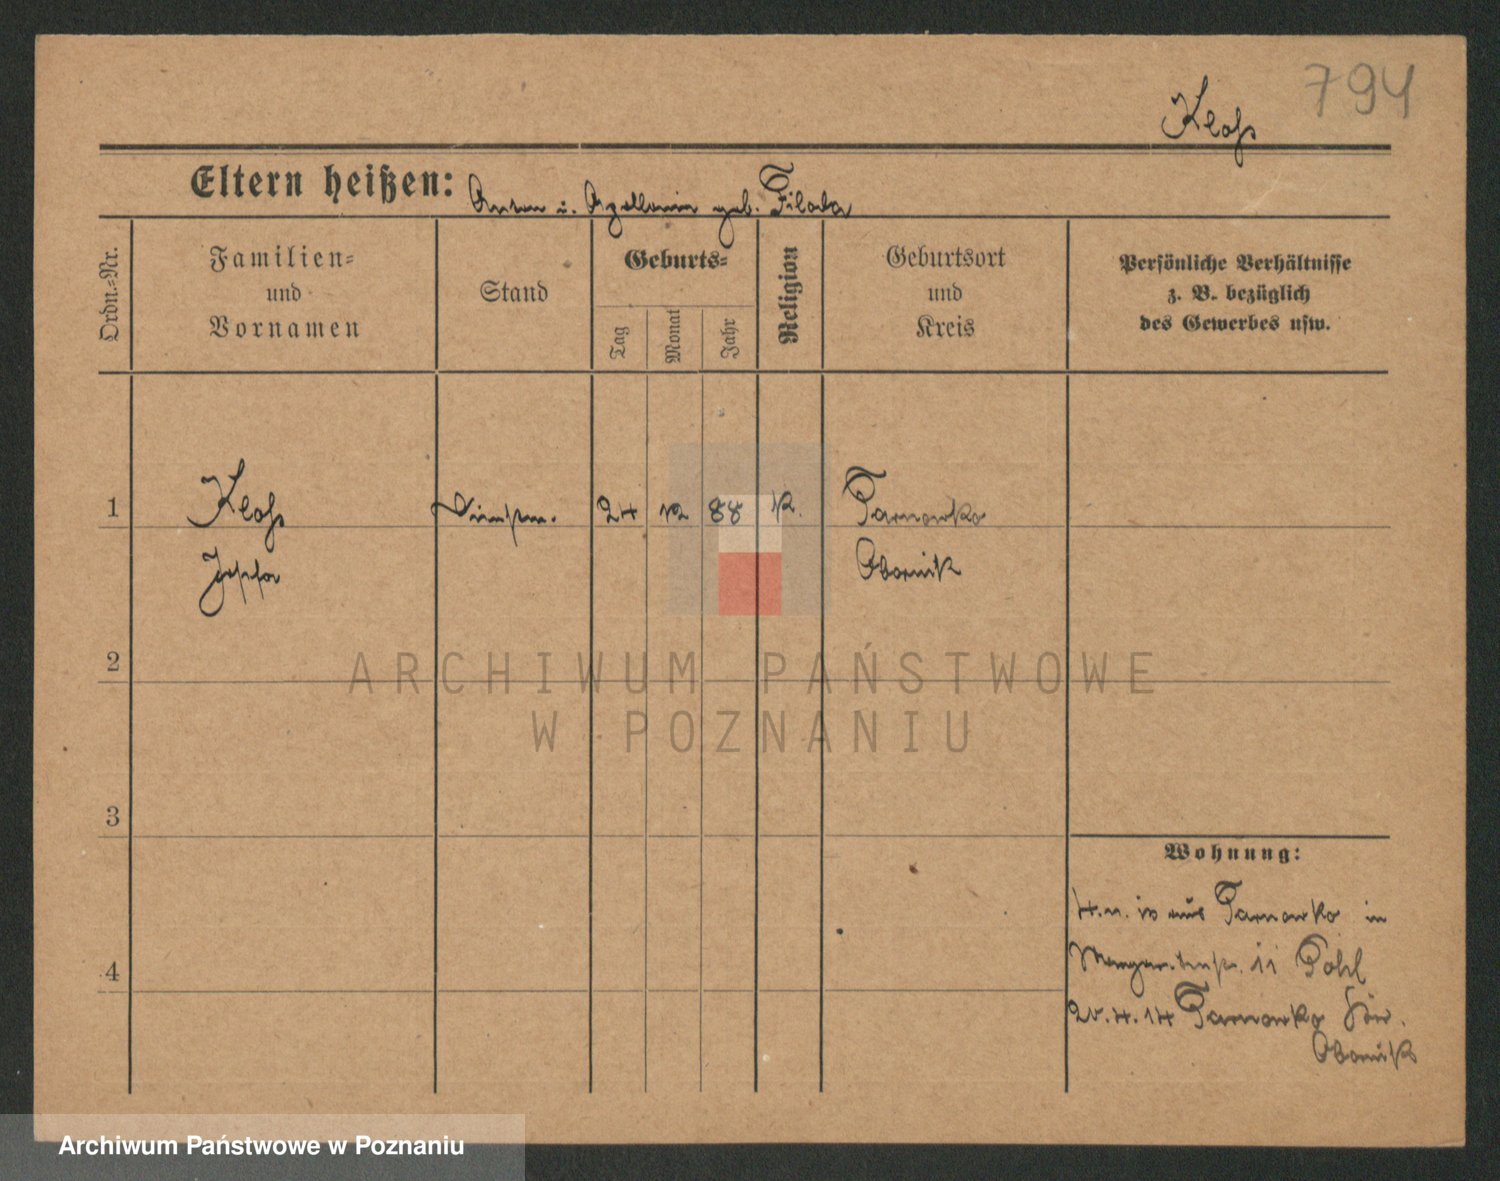 794
Kloss
Eltern heißen: Anton u. Apollonia geb. Filoda
Ordn.-Nr.
Familien-
und
Vornamen
Stand
Geburts-
Tag
Monat
Jahr
Religion
Geburtsort
und
Kreis
Persönliche Verhältnisse
z. B. bezüglich
des Gewerbes usw.
1 Kloss 24 12 88 K. Tarnowko
Obornik
2
ARCHIWUM PAŃSTWOWE
W POZNANIU
3
Wohnung:
aus Tarnowko in
4
11 Pohl
20.4.14 Tarnowko
Obornik
Archiwum Państwowe w Poznaniu